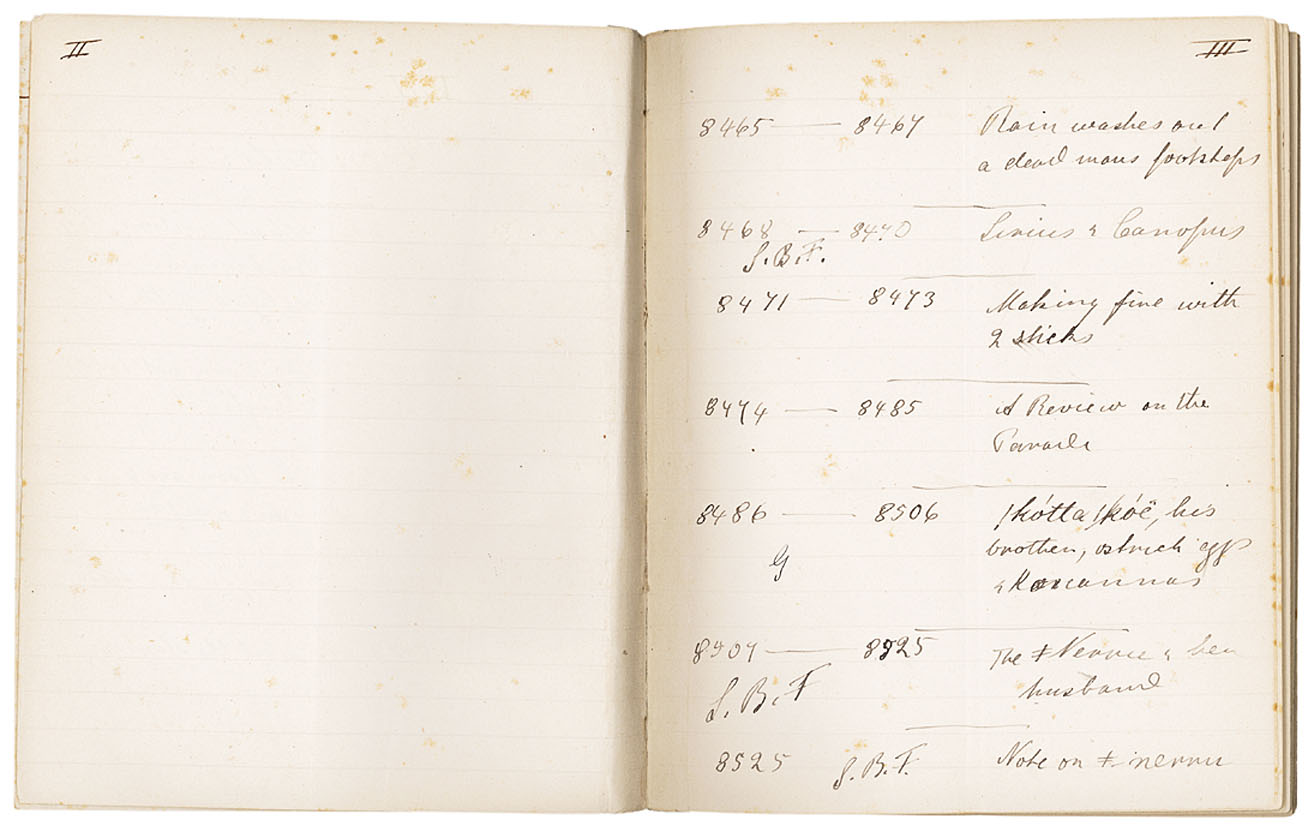 II
III
8465 — 8467 Rain washes out
a dead mans footsteps
8468 — 8470 Sirius & Canopus
S.B.F.
8471 — 8473 Making fire with
2 sticks
8474 — 8485 A Review on the
Parade
8486 — 8506 ǀkótta ǀkóë, his
brother, ostrich eggs
G
&
8507 — 8525 The ǂNerru & her
S.B.F husband
8525 S.B.F. Note on ǂnerru